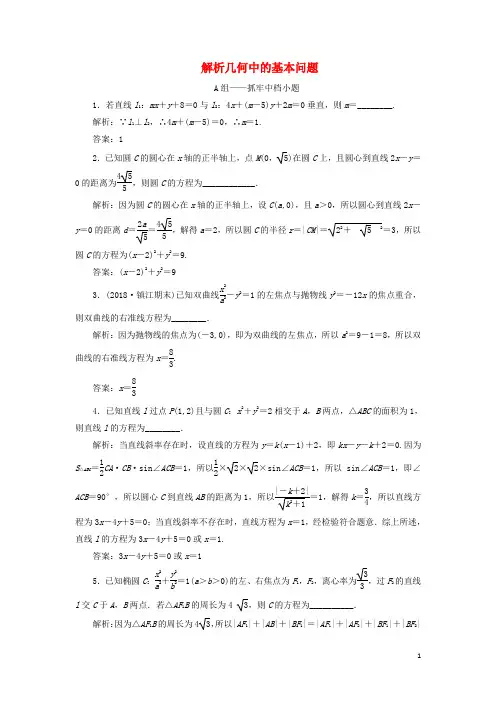 解析几何中的基本问题
A组——抓牢中档小题
1．若直线l₁：mx＋y＋8＝0与l₂：4x＋(m－5)y＋2m＝0垂直，则m＝________.
解析：∵l₁⊥l₂，∴4m＋(m－5)＝0，∴m＝1.
答案：1
2．已知圆C的圆心在x轴的正半轴上，点M(0，√5)在圆C上，且圆心到直线2x－y＝
0的距离为4√5/5，则圆C的方程为____________．
解析：因为圆C的圆心在x轴的正半轴上，设C(a,0)，且a＞0，所以圆心到直线2x－
y＝0的距离d＝2a/√5＝4√5/5，解得a＝2，所以圆C的半径r＝|CM|＝√(2²＋ √5 ²)＝3，所以
圆C的方程为(x－2)²＋y²＝9.
答案：(x－2)²＋y²＝9
3．(2018·镇江期末)已知双曲线x²/a²－y²＝1的左焦点与抛物线y²＝－12x的焦点重合，
则双曲线的右准线方程为________．
解析：因为抛物线的焦点为(－3,0)，即为双曲线的左焦点，所以a²＝9－1＝8，所以双
曲线的右准线方程为x＝8/3.
答案：x＝8/3
4．已知直线l过点P(1,2)且与圆C：x²＋y²＝2相交于A，B两点，△ABC的面积为1，
则直线l的方程为________．
解析：当直线斜率存在时，设直线的方程为y＝k(x－1)＋2，即kx－y－k＋2＝0.因为
S△ABC＝1/2CA·CB·sin∠ACB＝1，所以1/2×√2×√2×sin∠ACB＝1，所以 sin∠ACB＝1，即∠
ACB＝90°，所以圆心C到直线AB的距离为1，所以|－k＋2|/√(k²＋1)＝1，解得k＝3/4，所以直线方
程为3x－4y＋5＝0；当直线斜率不存在时，直线方程为x＝1，经检验符合题意．综上所述，
直线l的方程为3x－4y＋5＝0或x＝1.
答案：3x－4y＋5＝0或x＝1
5．已知椭圆C：x²/a²＋y²/b²＝1(a＞b＞0)的左、右焦点为F₁，F₂，离心率为√3/3，过F₂的直线
l交C于A，B两点．若△AF₁B的周长为4 √3，则C的方程为__________．
解析：因为△AF₁B的周长为4√3，所以|AF₁|＋|AB|＋|BF₁|＝|AF₁|＋|AF₂|＋|BF₁|＋|BF₂|
1